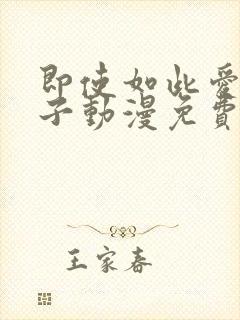 即使如此愛
子動漫免費
王家春